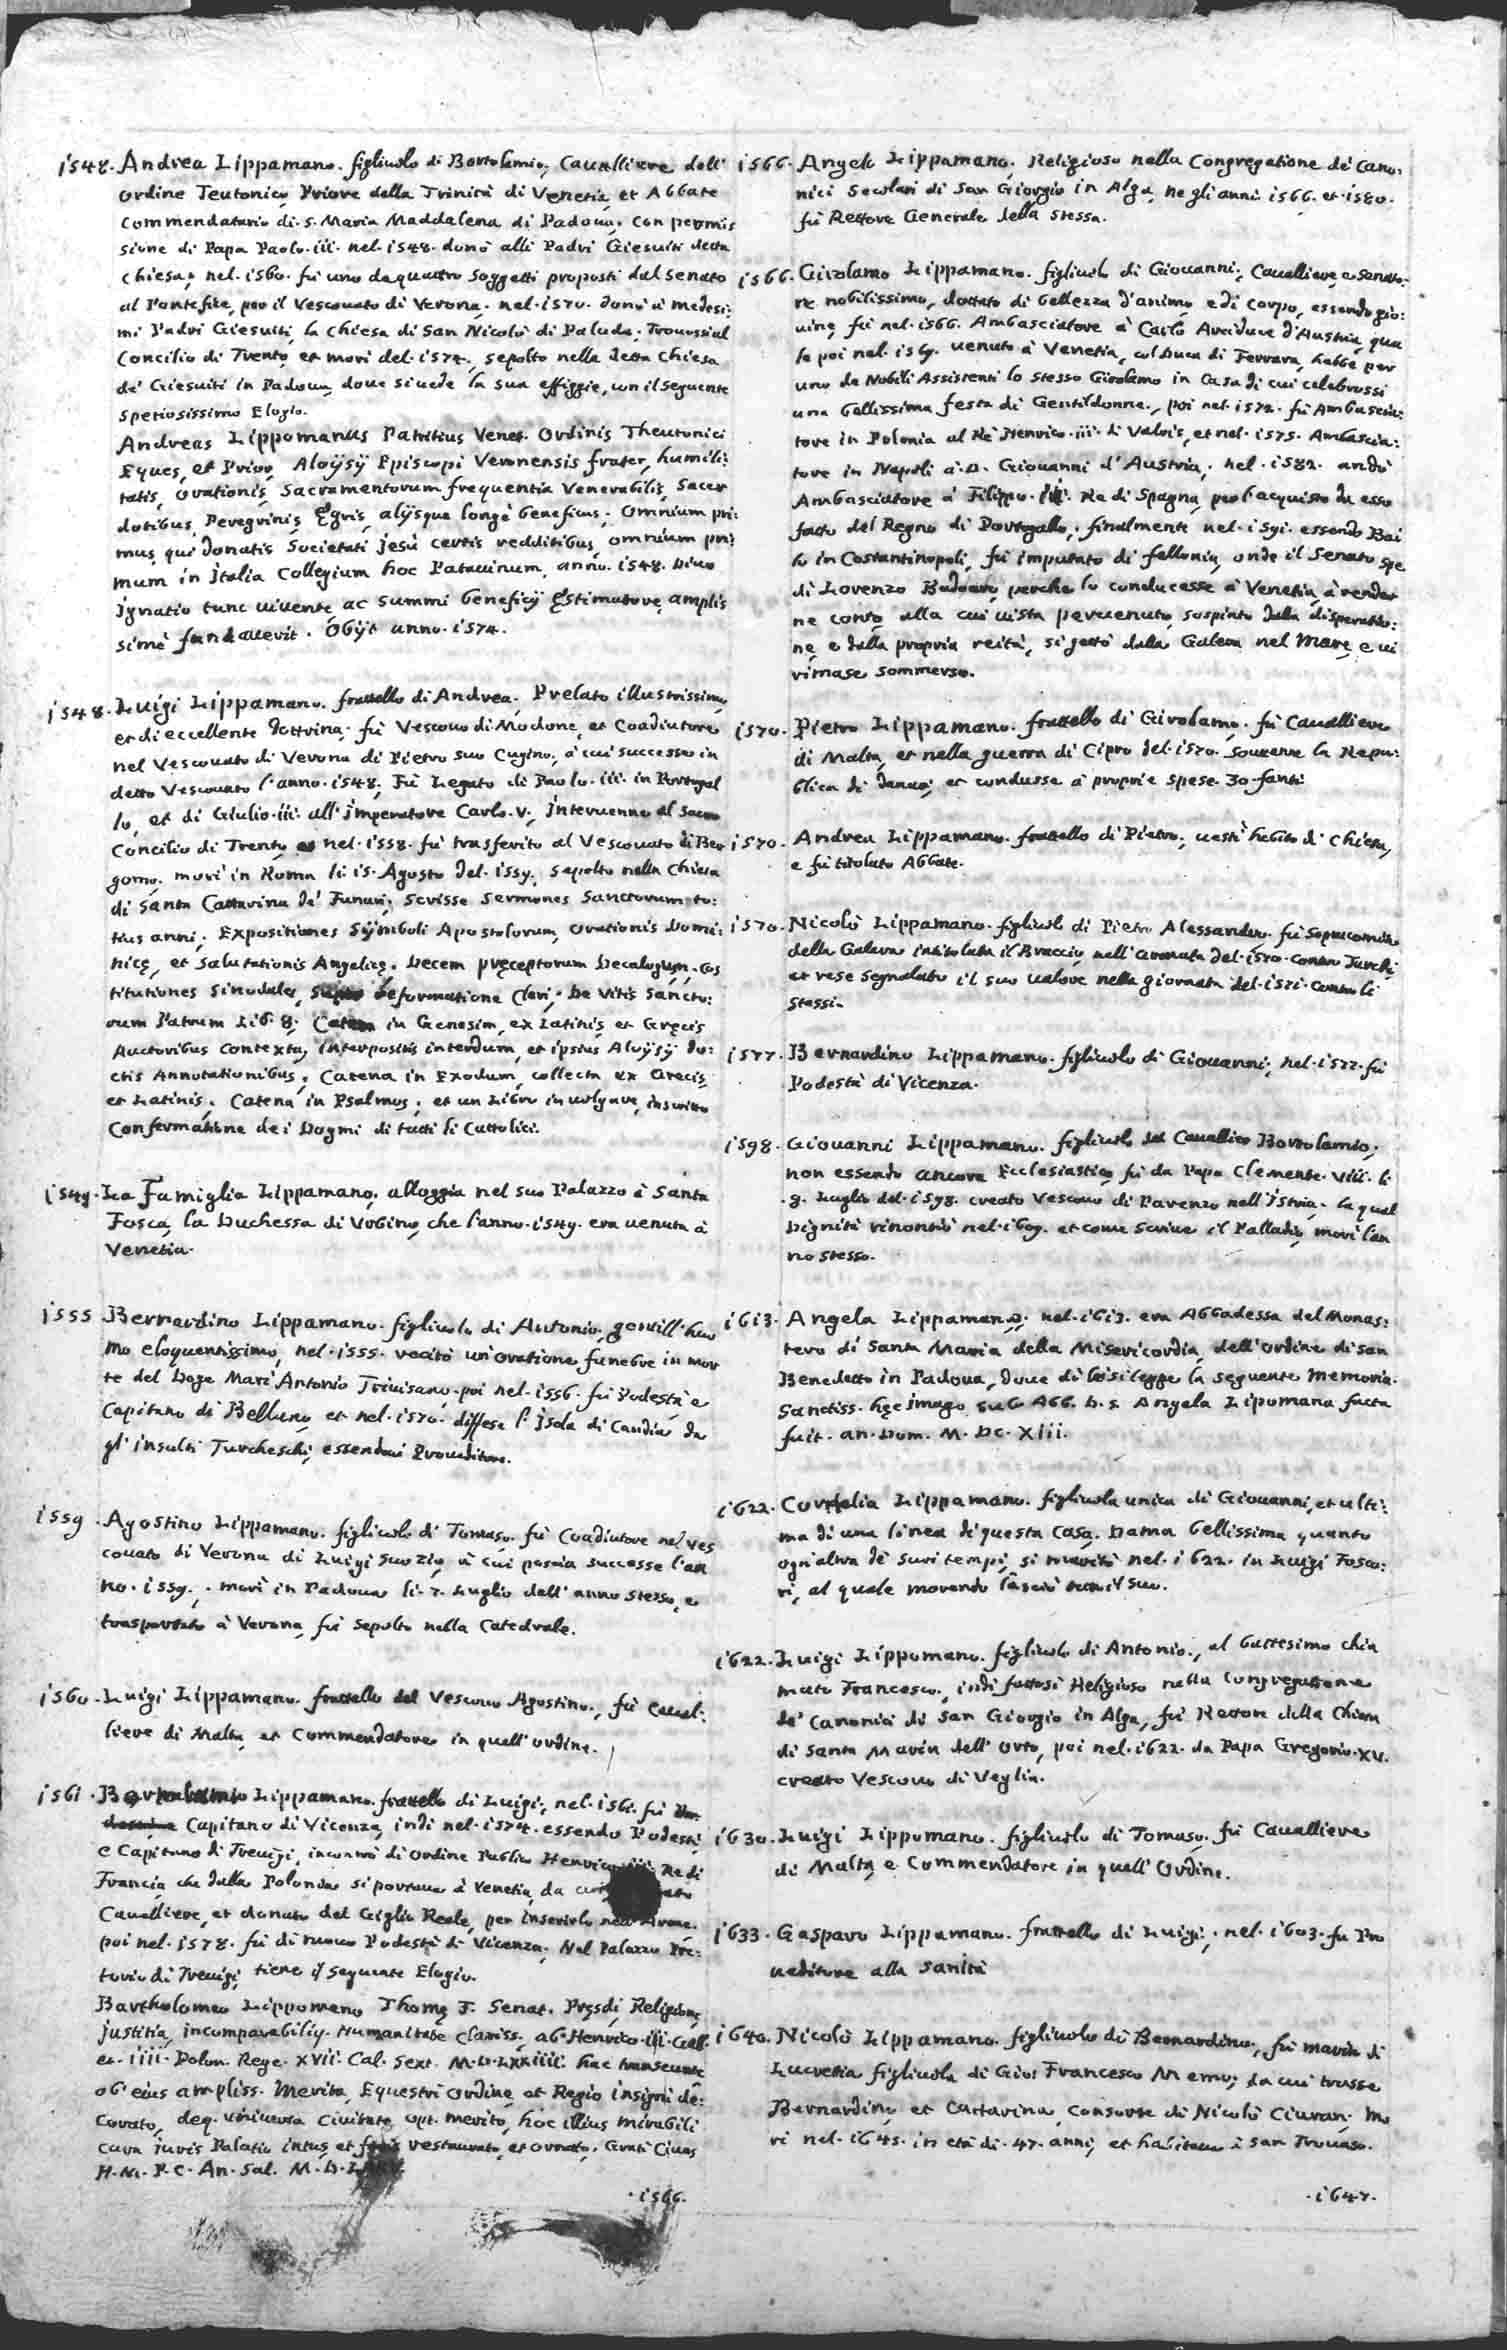 1548. Andrea Lippamano. figliuolo di Bortolamio, Cavalliere dell'
Ordine Teutonico, Priore della Trinità di Venetia, et Abbate
Commendatario di. S. Maria Maddalena di Padoua, con permis
sione di Papa Paolo. iii. nel. 1548. donò alli Padri Giesuiti detta
chiesa; nel. 1560. fù uno de quattro Soggetti proposti dal Senato
al Pontefice, per il Vescouato di Verona, nel. 1570. donò a' medesi:
mi Padri Giesuiti, la chiesa di San Nicolò di Palude. Trouossi al
Concilio di Trento, et morì del. 1574. sepolto nella detta chiesa
de' Giesuiti in Padoua, doue si uede la sua effiggie, con il seguente
spetiosissimo Elogio.
Andreas Lippomanus Patritius Venet. Ordinis Theutonici
Eques, et Prior, Aloÿsÿ Episcopi Veronensis frater, humili:
tatis, Orationis, Sacramentorum frequentia Venerabilis, Sacer
dotibus, Peregrinis, Ęgris, alÿsque longè beneficus, Omnium pri:
mus, qui donatis Societati jesù certis redditibus, omnium pri:
mum in italia Collegium hoc Patauinum, anno. 1548. Diuo
ignatio tunc uiuente, ac summi beneficÿ Ęstimatore, amplis
simè fundauerit. Obÿt anno. 1574.
1548. Luigi Lippamano. frattello di Andrea, Prelato illustrissimo,
et di eccellente dottrina; fù Vescouo di Modone, et Coadiutore
nel Vescouato di Verona di Pietro suo Cugino, à cui successe in
detto Vescouato l'anno. 1548. Fù Legato di Paolo. iii. in Portogal
lo, et di Giulio. iii. all'imperatore Carlo. V. interuenne al Sacro
Concilio di Trento, et nel. 1558. fù trasferito al Vescouato di Ber
gomo. morì in Roma li. 15. Agosto del. 1559. sepolto nella chiesa
di Santa Cattarina de' Funari; scrisse Sermones Sanctorum to:
tius anni; Expositiones Sÿmboli Apostolorum, Orationis Domi:
nicę, et Salutationis Angelicę. Decem pręceptorum Decalogum. Cos
titutiones Sinodales, deformatione Cleri. De Vitis Sancto:
rum Patrum Lib. 8. Catena in Genesim, ex Latinis, et Gręcis
Auctoribus Contexta, interpositis interdum, et ipsius Aloÿsÿ do:
ctis Annotationibus. Catena in Exodum, collecta ex Grecis,
et Latinis. Catena in Psalmos; et un Libro in uolgare, inscritto
Confermatione dei Dogmi di tutti li Cattolici.
1549. La Famiglia Lippamano, alloggia nel suo Palazzo à Santa
Fosca, la Duchessa di Vrbino, che l'anno. 1549. era uenuta à
Venetia.
1555. Bernardino Lippamano. figliuolo di Antonio, gentill'huo
mo eloquentissimo, nel. 1555. recitò un'oratione funebre in mor
te del Doge Marc'Antonio Triuisano, poi nel. 1556. fù Podestà e
Capitano di Belluno, et nel. 1570. diffese l'Isola di Candia da
gl'insulti Turcheschi, essendoui Proueditore.
1559. Agostino Lippamano. figliuolo di Tomaso. fù Coadiutore nel Ves
couato di Verona di Luigi suo Zio, à cui poscia successe l'an
no. 1559. morì in Padoua li. 7. Luglio dell'anno stesso, e
trasportato à Verona, fù sepolto nella Catedrale.
1560. Luigi Lippamano. frattello del Vescouo Agostino, fù Caual:
liere di Malta, et Commendatore in quell'ordine.
1561. Lippamano. frattello di Luigi, nel. 1561. fù
Capitano di Vicenza, indi nel. 1574. essendo Podestà,
e Capitano di Treuigi, incontrò di ordine Publico Henrico Re di
Francia, che dalla Polonia si portaua à Venetia, da
Cauelliere, et donato del Giglio Reale, per inserirlo nell'Arme.
poi nel. 1578. fù di nuouo Podestà di Vicenza. Nel Palazzo Pre:
torio di Treuigi, tiene il seguente Elogio.
Bartholomeo Lippomano Thomę F. Senat. Pręsdi, Religione,
justitia, incomparabiliq. Humanitate Clariss. ab Henrico. iii. Gall.
et. iiii. Polon. Rege. XVII. Cal. Sext. M.D.LXXIIII. hac transeunte
ob eius ampliss. Merita, Equestri Ordine, et Regio insigni de:
corato, deq. uniuersa Ciuitate, opt. merito, hoc illius mirabili
cura juris Palatio intus, et restaurato, et ornato. Grati Ciues
H. M. P. C. An. Sal. M. D.
. 1566.
1566. Angelo Lippamano. Religioso nella Congregatione de' Cano:
nici Secolari di San Giorgio in Alga, ne gli anni. 1566. et. 1580.
fù Rettore Generale della stessa.
1566. Girolamo Lippamano. figliuolo di Giouanni, Cauelliere, e Senato:
re nobilissimo, dottato di bellezza d'animo, e di corpo, essendo gio:
uine, fù nel. 1566. Ambasciatore à Carlo Arciduca d'Austria, qua
le poi nel. 1569. uenuto à Venetia, col Duca di Ferrara, hebbe per
uno de Nobili Assistenti lo stesso Girolamo in Casa di cui celebrossi
una bellissima festa di Gentildonne, poi nel. 1572. fù Ambascia:
tore in Polonia al Rè Henrico. iii. di Valois, et nel. 1575. Ambascia:
tore in Napoli à. D. Giouanni d'Austria, nel. 1582. andò
Ambasciatore à Filippo Re di Spagna, per l'acquisto da esso
fatto del Regno di Portogallo, finalmente nel. 1591. essendo Bai
lo in Costantinopoli, fù imputato di fellonia, onde il Senato spe
dì Lorenzo Badoaro, perche lo conducesse à Venetia, à render
ne conto, alla cui uista peruenuto, sospinto dalla disperatio:
ne, e dalla propria reità, si gettò dalla Galera nel Mare, e ui
rimase sommerso.
1570. Pietro Lippamano. frattello di Girolamo. fù Cauelliere
di Malta, et nella guerra di Cipro del. 1570. souuenne la Repu:
blica di danari, et condusse à proprie spese. 30. fanti.
1570. Andrea Lippamano. frattello di Pietro, uestì habito di chiesa,
e fù titolato Abbate.
1570. Nicolò Lippamano. figliuolo di Pietro Alessandro. fù Sopracomito
della Galera intitolata il Braccio, nell'armata del. 1570. contro Turchi,
et rese segnalato il suo ualore nella giornata del. 1571. contro li
stessi.
1577. Bernardino Lippamano. figliuolo di Giouanni, nel. 1577. fù
Podestà di Vicenza.
1598. Giouanni Lippamano. figliuolo del Cauallier Bortolamio;
non essendo ancora Ecclesiastico, fù da Papa Clemente. viii. li.
.8. Luglio del. 1598. creato Vescouo di Parenzo nell'Istria. la qual
Dignità rinontiò nel. 1609. et come scriue il Palladio, morì l'an
no stesso.
1613. Angela Lippamano. nel. 1613. era Abbadessa del Monas:
tero di Santa Maria della Misericordia, dell'ordine di San
Benedetto in Padoua, doue di lei si legge la seguente Memoria.
Sanctiss. hęc imago sub Abb. D. s. Angela Lipomana facta
fuit. an. Dom. M. DC. XIII.
1622. Cornelia Lippamano. figliuola unica di Giouanni, et ulti:
ma di una linea di questa Casa. Dama bellissima quanto
ogn'altra de' suoi tempi, si maritò nel. 1622. in Luigi Fosca:
ri, al quale morendo lasciò tutto il suo.
1622. Luigi Lippomano. figliuolo di Antonio, al battesimo chia
mato Francesco, indi fattosi Religioso nella Congregatione
de' Canonici di San Giorgio in Alga, fù Rettore della Chiesa
di Santa Maria dell'Orto, poi nel. 1622. da Papa Gregorio. XV.
creato Vescouo di Veglia.
1630. Luigi Lippomano. figliuolo di Tomaso, fù Cauelliere
di Malta, e Commendatore in quell'Ordine.
1633. Gasparo Lippamano. frattello di Luigi, nel. 1603. fù Pro
ueditore alla Sanità
1640. Nicolò Lippamano. figliuolo di Bernardino, fù marito di
Lucretia figliuola di Gio: Francesco Memo; da cui trasse
Bernardino, et Cattarina, Consorte di Nicolò Ciuran; Mo
rì nel. 1645. in età di. 47. anni, et habitaua à San Trouaso.
. 1647.